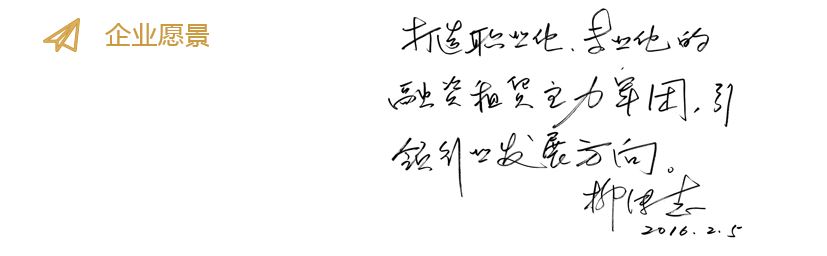 企业愿景
打造职业化、专业化的
融资租赁主力军团，引
领行业发展方向。
柳传志
2016.2.5